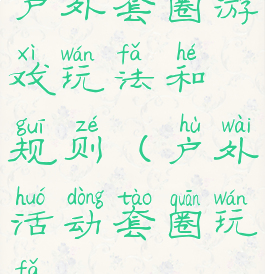 户外套圈游
xì wán fǎ hé
戏玩法和
guī zé hù wài
规则（户外
huó dòng tào quān wán
活动套圈玩
fǎ